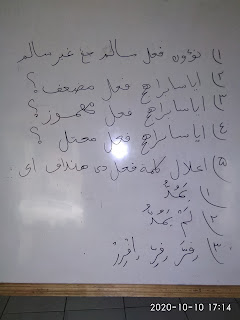 ١) تؤوره فعل سالم مع غير سالم
٢) اياسابراهي فعل مضعف؟
٣) اياسابراهي فعل مهموز؟
٤) اياسابراهي فعل معتل؟
٥) اعلال كلمه فعل دي هنداف اي
١) يَمُدُّ
٢) لَمْ يَمُدُّ
٣) فِرَّ فِرِّ اِفْرِرْ
2020-10-10 17:14